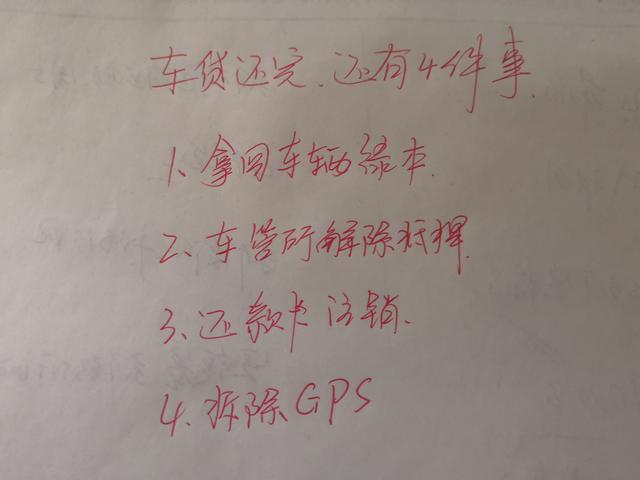 车贷还完、还有4件事
1、拿回车辆绿本
2、车管所解除抵押
3、还款卡注销.
4.拆除GPS